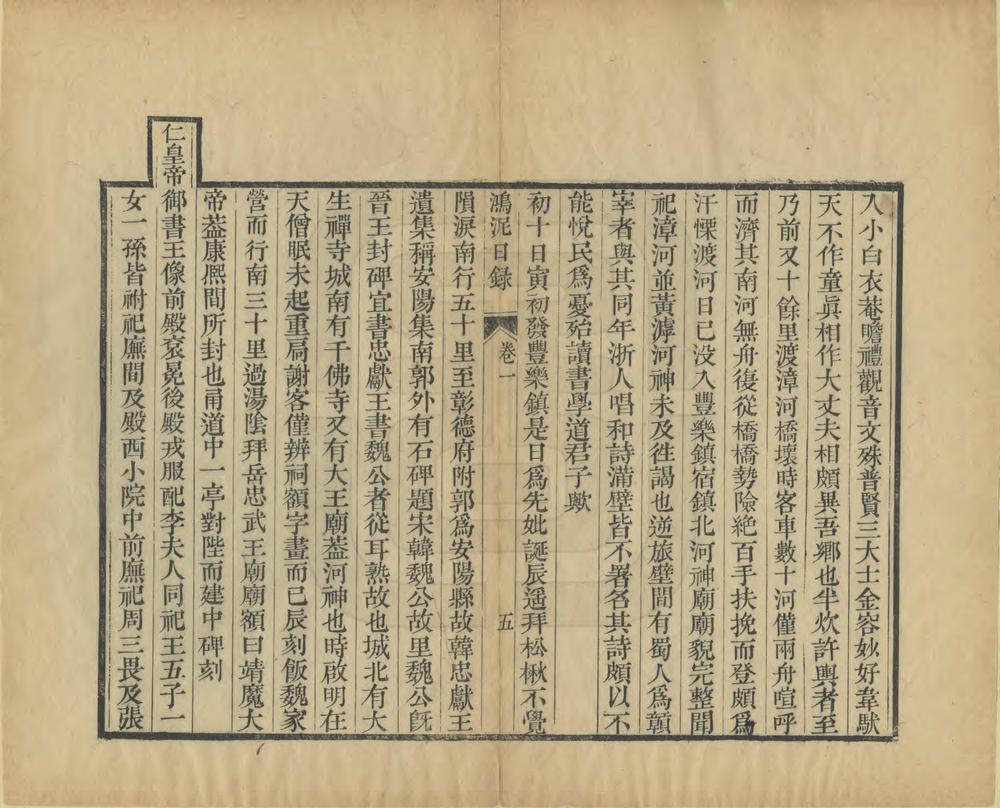 入小白衣菴瞻禮觀音文殊普賢三大士金容妙好韋馱
天不作童眞相作大丈夫相頗異吾鄉也半炊許輿者至
乃前又十餘里渡漳河橋壞時客車數十河僅兩舟喧呼
而濟其南河無舟復從橋橋勢險絶百手扶挽而登頗爲
汗慄渡河日已没入豐樂鎮宿鎮北河神廟廟貌完整聞
祀漳河並黃滹河神未及徃謁也逆旅壁間有蜀人爲贛
宰者與其同年浙人唱和詩滿壁皆不署名其詩頗以不
能悅民爲憂殆讀書學道君子歟
初十日寅初發豐樂鎮是日爲先妣誕辰遥拜松楸不覺
鴻泥日録 卷一 五
隕淚南行五十里至彰德府附郭爲安陽縣故韓忠獻王
遺集稱安陽集南郭外有石碑題宋韓魏公故里魏公旣
晉王封碑宜書忠獻王書魏公者從耳熟故也城北有大
生禪寺城南有千佛寺又有大王廟葢河神也時啟明在
天僧眠未起重扃謝客僅辨祠額字畫而已辰刻飯魏家
營而行南三十里過湯陰拜岳忠武王廟廟額曰靖魔大
帝葢康熙間所封也甬道中一亭對陛而建中碑刻
仁皇帝御書王像前殿衮冕後殿戎服配李夫人同祀王五子一
女一孫皆祔祀廡間及殿西小院中前廡祀周三畏及張